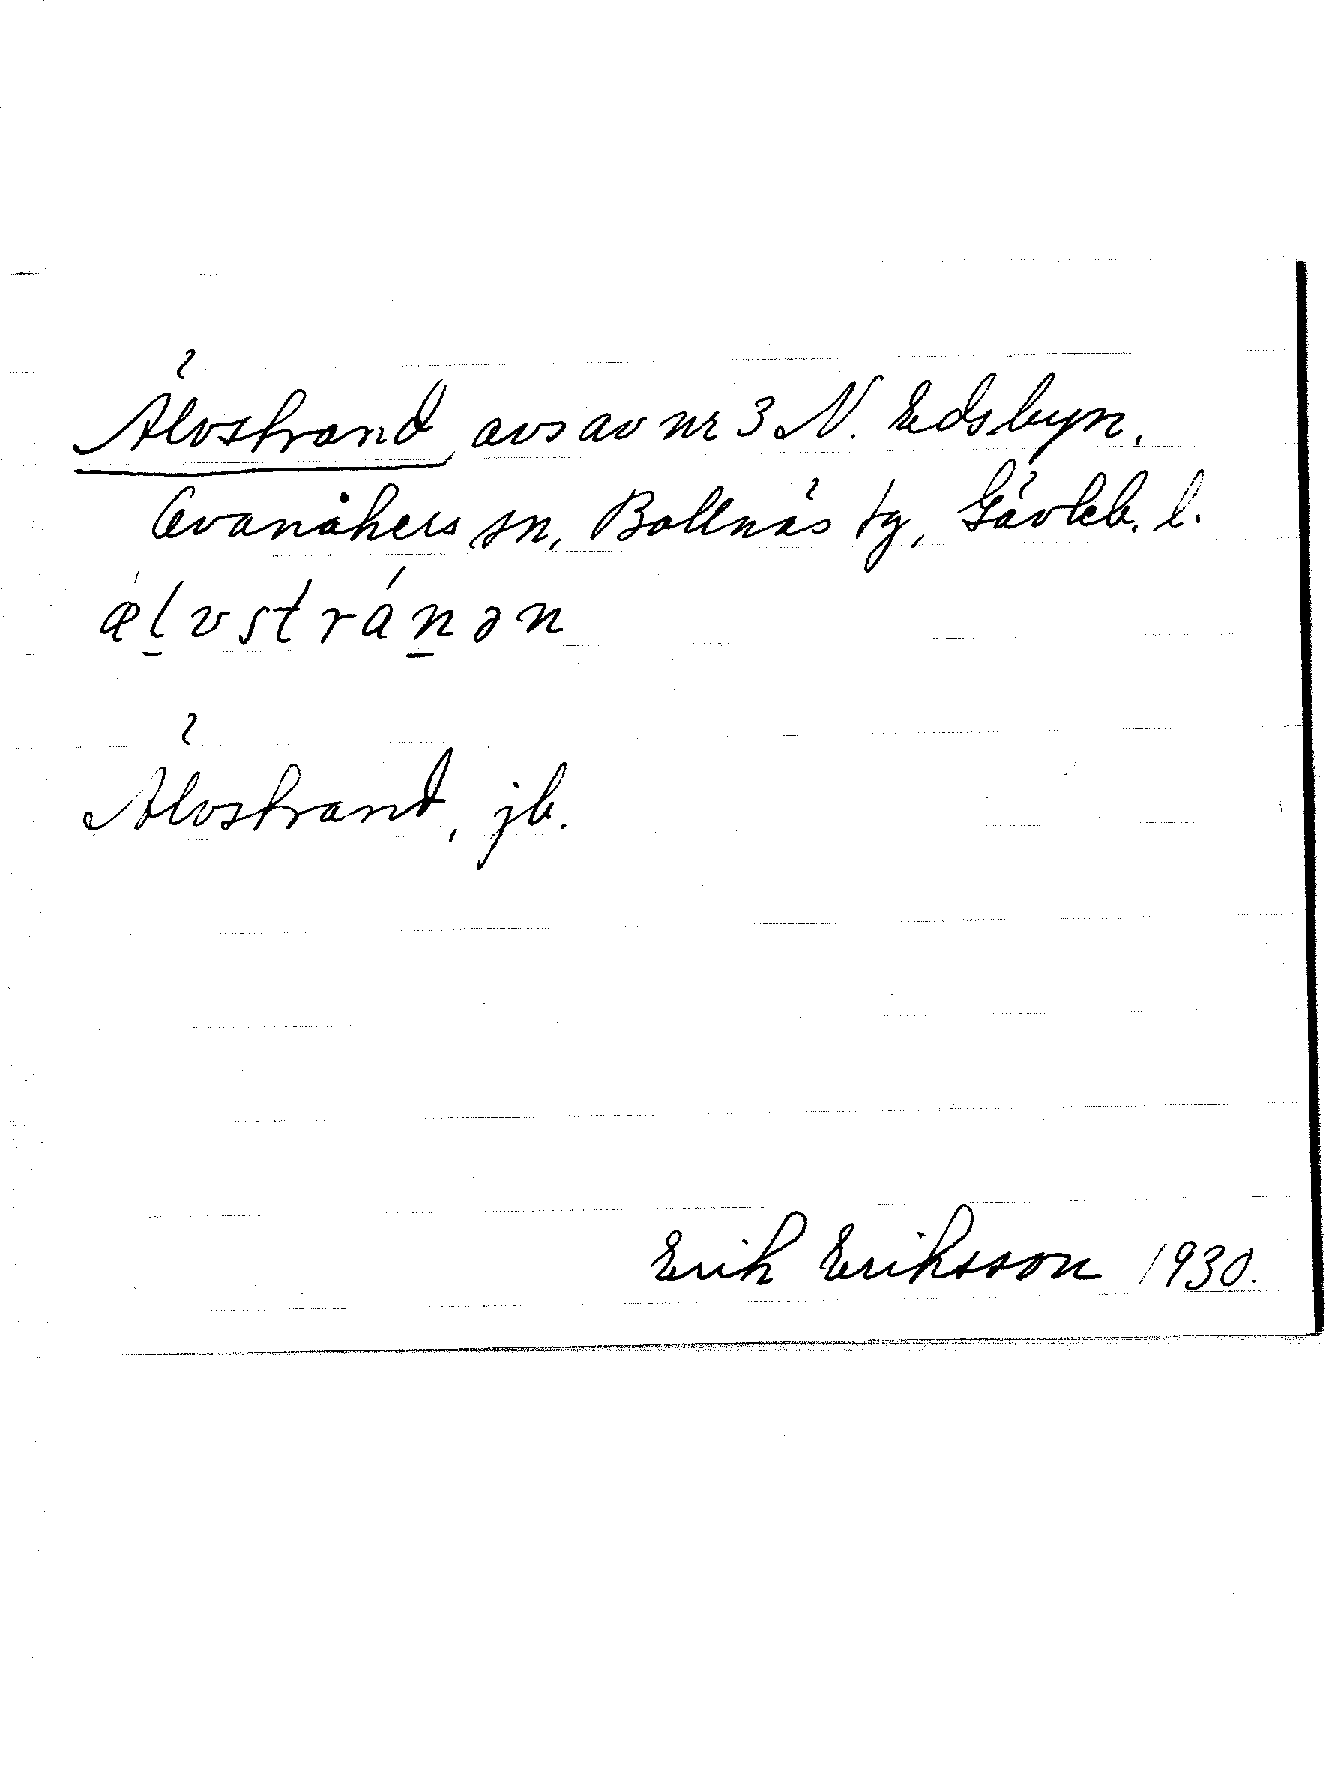 Älvstrand, avs av nr 3 N. Edsbyn.
Ovanåkers sn, Bollnäs tg, Gävleb. l.
æl̲vstrán̲ən
Älvstrand, jb.
Erik Eriksson 1930.